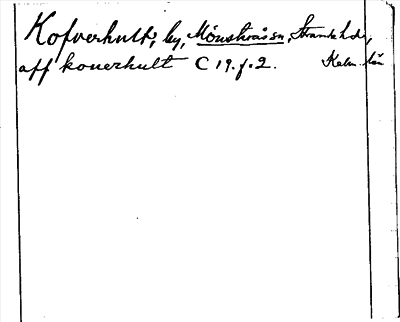 Kofverhult, by, Mönsterås sn, Stranda hd,
aff kouerhult C 19. f. 2. Kalm. län